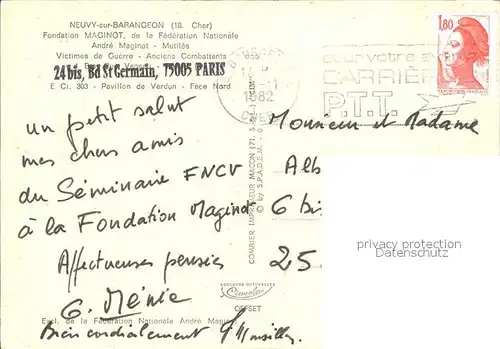 NEUVY-sur-BARANGEON (18. Cher)
Fondation MAGINOT, de la Fédération Nationale
André Maginot - Mutilés
Victimes de Guerre - Anciens Combattants
24 bis, Bd St Germain, 75005 PARIS
E Ci. 303 - Pavillon de Verdun - Face Nord
1,80
CARRIÈRE
P.T.T.
1982
CHER
un petit salut
mes chers amis
du Séminaire FNCV
à la Fondation Maginot
Affectueuses pensées
G. Ménie
Bien cordialement
Monsieur et Madame
Alb
6 bis
25
COMBIER IMPRIMEUR MACON (71. S.-&-L.)
© by S.P.A.D.E.M.
COULEURS NATURELLES
Cimolor
OFFSET
Excl. de la Fédération Nationale André Maginot
privacy protection
Datenschutz